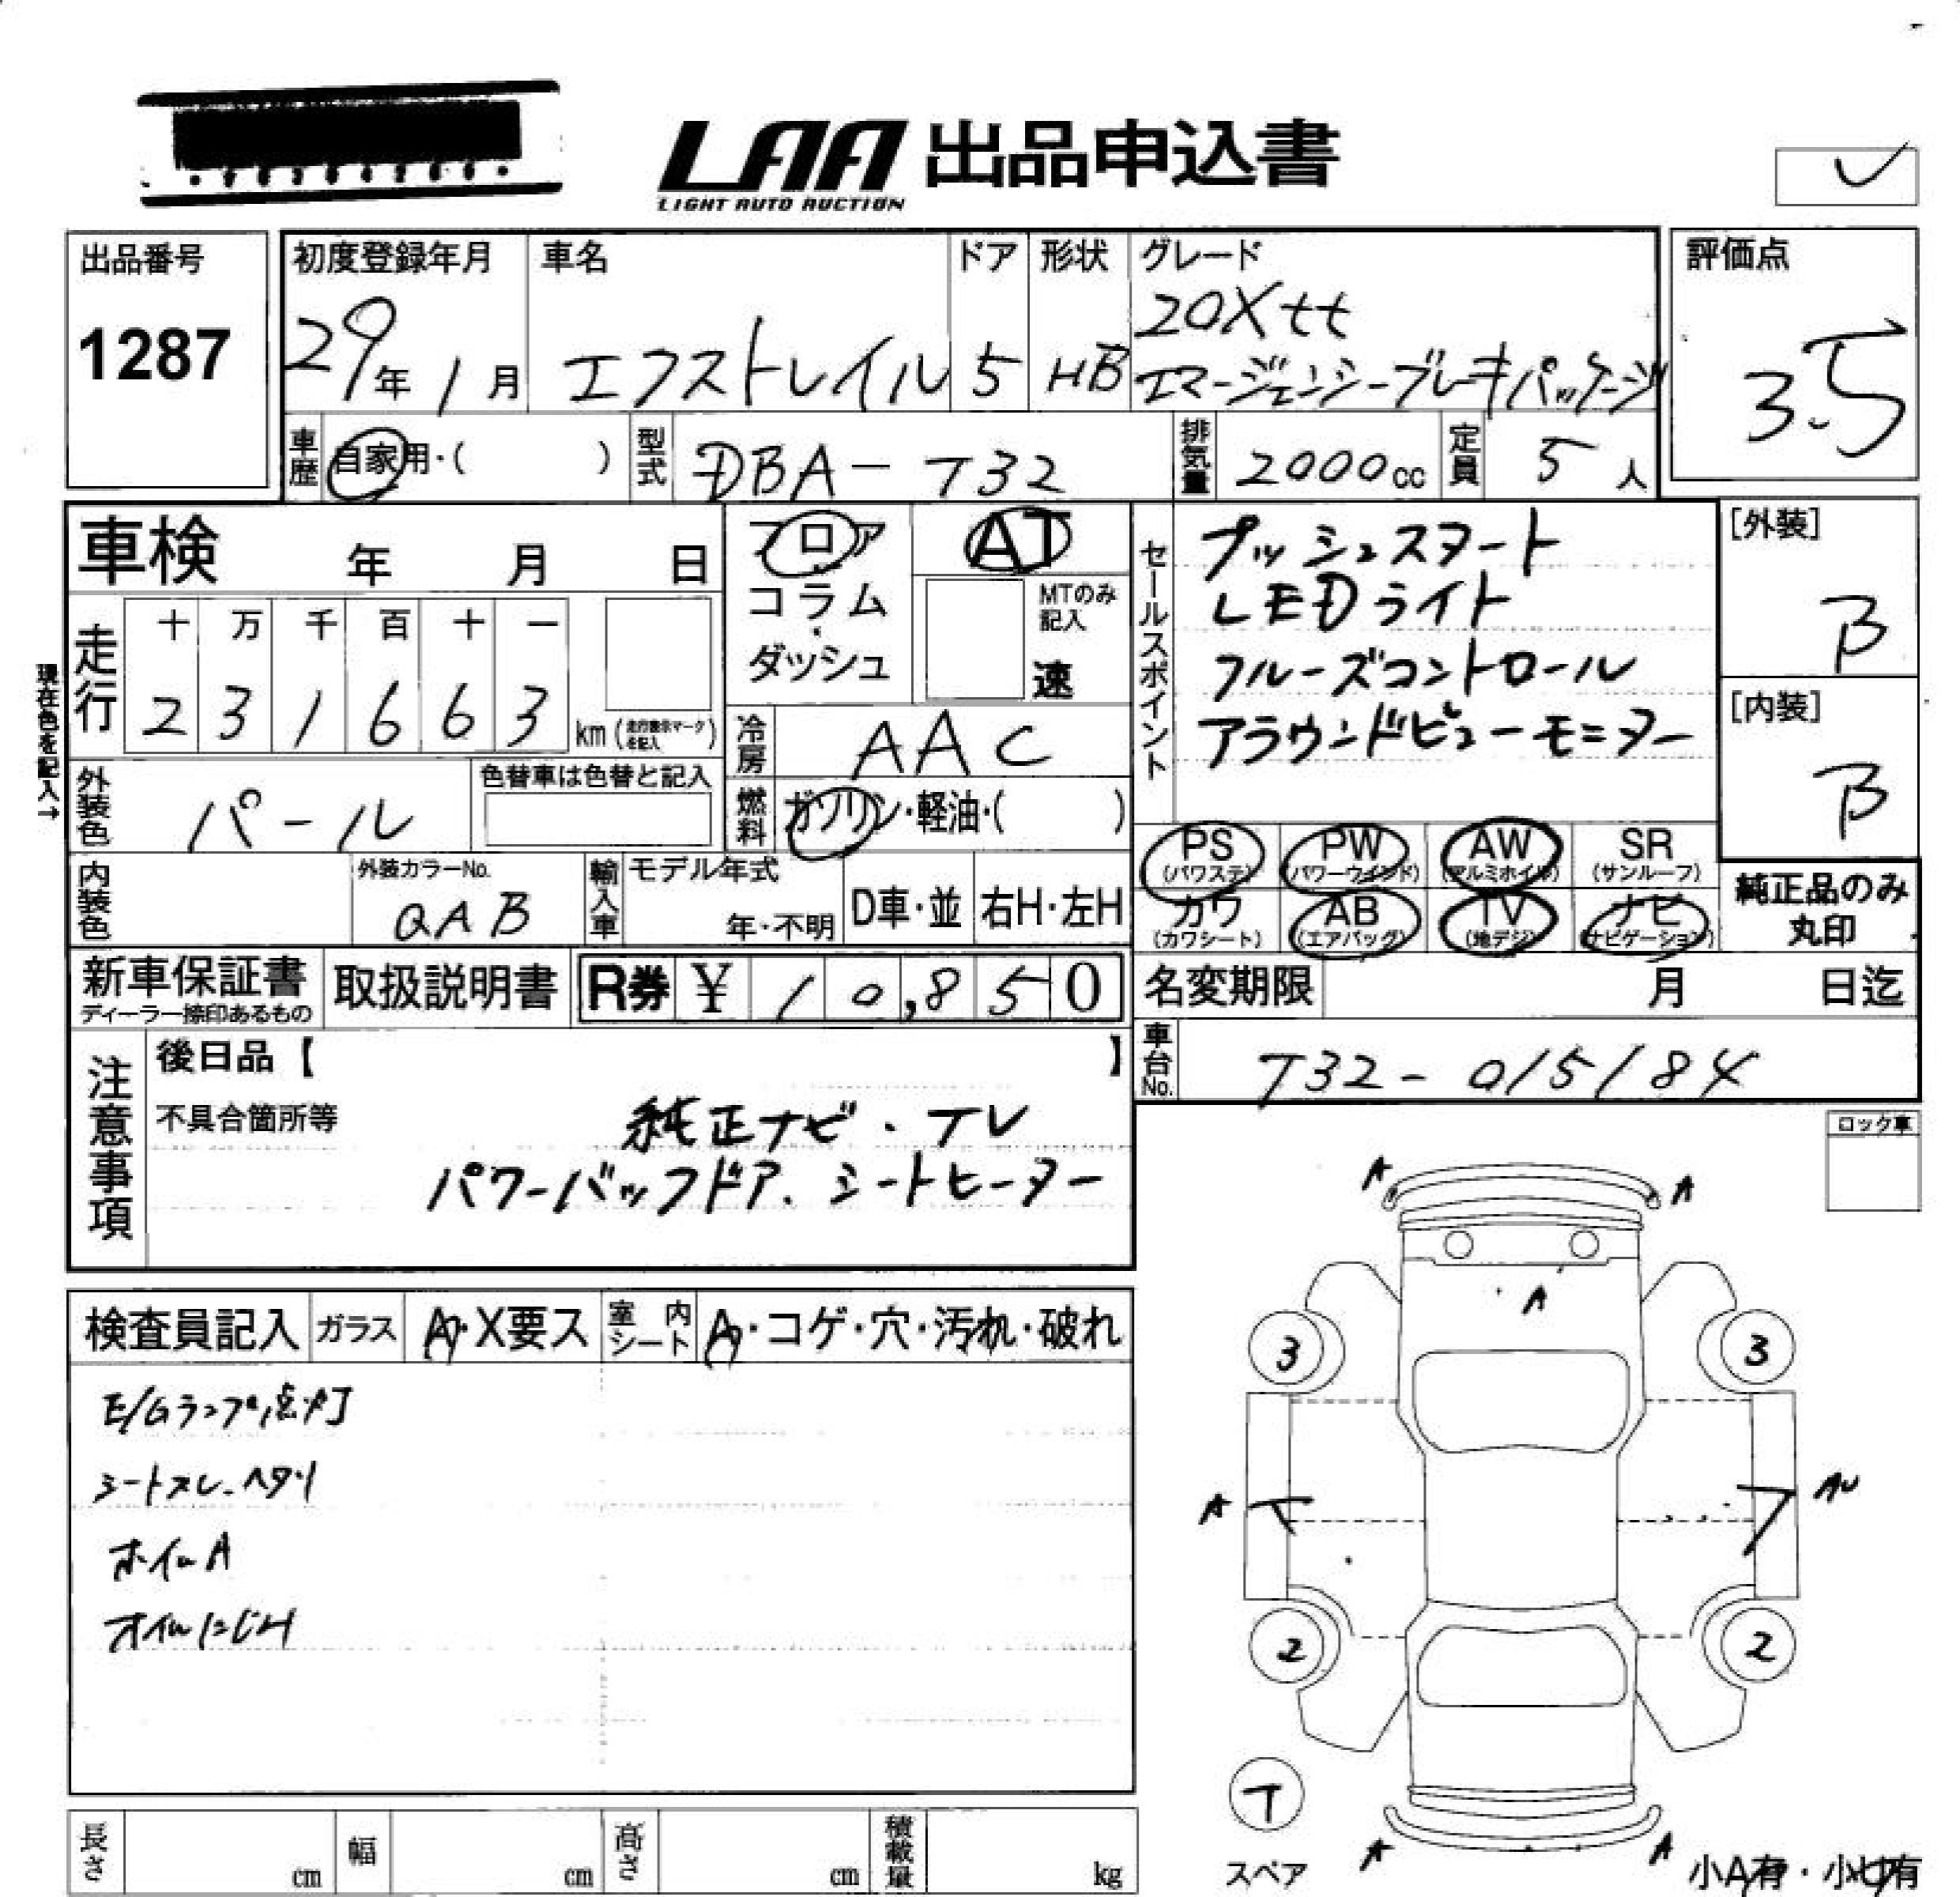 LAA 出品申込書
LIGHT AUTO AUCTION
出品番号
1287
初度登録年月
29年1月
車名
エクストレイル
ドア
5
形状
HB
グレード
20Xtt
エマージェンシーブレーキパッケージ
評価点
3.5
車歴
自家用・( )
型式
DBA-T32
排気量
2000cc
定員
5人
車検 年 月 日
フロア
コラム
・
ダッシュ
AT
MTのみ
記入
速
セールスポイント
プッシュスタート
LEDライト
クルーズコントロール
アラウンドビューモニター
[外装]
B
[内装]
B
現在色を記入→
走行
十 万 千 百 十 一
2 3 1 6 6 3 km (走行表示マークを記入)
冷房
AAC
外装色
パール
色替車は色替と記入
燃料
ガソリン・軽油・( )
PS
(パワステ)
PW
(パワーウインド)
AW
(アルミホイル)
SR
(サンルーフ)
カワ
(カワシート)
AB
(エアバッグ)
TV
(地デジ)
ナビ
(ナビゲーション)
純正品のみ
丸印
内装色
外装カラーNo.
QAB
輸入車
モデル年式
年・不明
D車・並
右H・左H
新車保証書
ディーラー捺印あるもの
取扱説明書
R券 ¥ 10,850
名変期限 月 日迄
車台No.
T32-015184
注意事項
後日品【 】
不具合箇所等
純正ナビ・TV
パワーバックドア、シートヒーター
ロック車
検査員記入
ガラス
A・X要ス
室内シート
A・コゲ・穴・汚れ・破れ
E/Gランプ点灯
シートスレ・ヘタリ
ホイルA
オイルにじみ
A
A
A
3
3
A
AU
2
2
T
スペア
A
A
小A有・小U有
長さ cm
幅 cm
高さ cm
積載量 kg